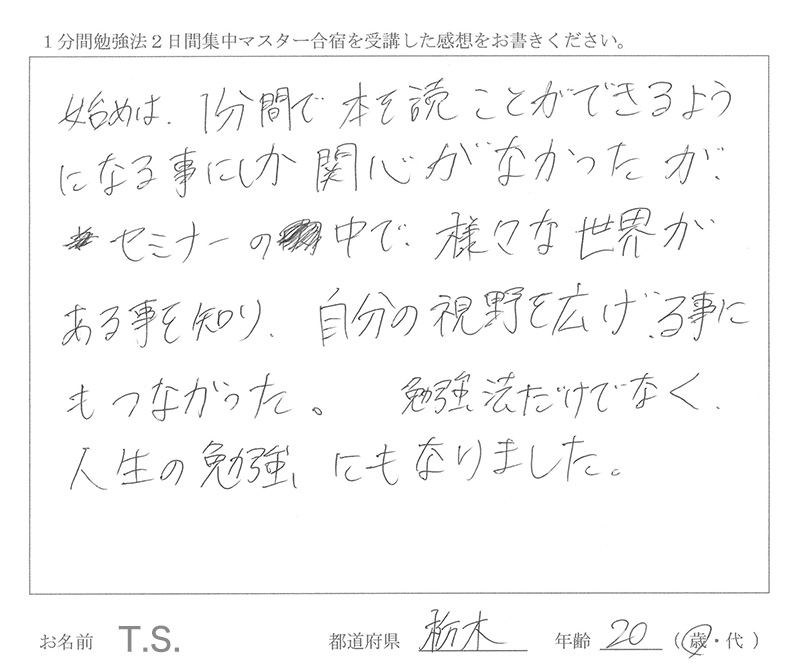 1分間勉強法2日間集中マスター合宿を受講した感想をお書きください。
始めは、1分間で本を読ことができるよう
になる事にしか関心がなかったが、
セミナーの中で、様々な世界が
ある事を知り、自分の視野を広げる事に
もつながった。 勉強法だけでなく、
人生の勉強にもなりました。
お名前 T.S. 都道府県 栃木 年齢 20 (歳・代)